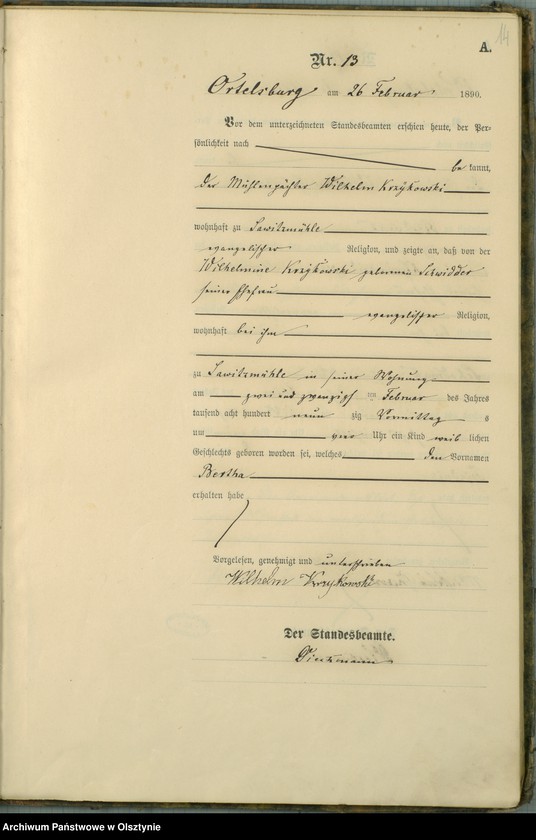 14
A.
Nr. 13
Ortelsburg am 26 Februar 1890.
Vor dem unterzeichneten Standesbeamten erschien heute, der Per-
sönlichkeit nach
be kannt,
der Mühlenpächter Wilhelm Krzykowski
wohnhaft zu Sawitzmühle
evangelischer Religion, und zeigte an, daß von der
Wilhelmine Krzykowski geborenen Schwidder
seiner Ehefrau
evangelischer Religion,
wohnhaft bei ihm
zu Sawitzmühle in seiner Wohnung
am zwei und zwanzigsten Februar des Jahres
tausend acht hundert neun zig Vormittag s
um vier Uhr ein Kind weib lichen
Geschlechts geboren worden sei, welches den Vornamen
Bertha
erhalten habe
Vorgelesen, genehmigt und unterschrieben
Wilhelm Krzykowski
Der Standesbeamte.
Archiwum Państwowe w Olsztynie